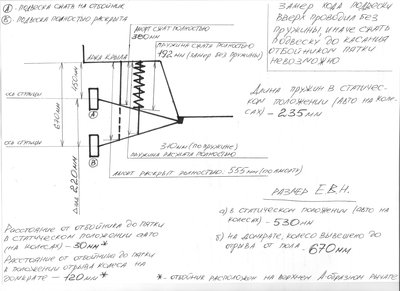 А - ПОДВЕСКА СЖАТА НА ОТБОЙНИК
В - ПОДВЕСКА ПОЛНОСТЬЮ РАСКРЫТА
ЗАМЕР ХОДА ПОДВЕСКИ
ВВЕРХ ПРОВОДИЛ БЕЗ
ПРУЖИНЫ, ИНАЧЕ СЖАТЬ
ПОДВЕСКУ ДО КАСАНИЯ
ОТБОЙНИКОМ ПЯТКИ
НЕВОЗМОЖНО
АМОРТ СЖАТ ПОЛНОСТЬЮ
ПРУЖИНА СЖАТА ПОЛНОСТЬЮ
192 ММ (ЗАМЕР БЕЗ ПРУЖИНЫ)
АРКА КРЫЛА
450ММ
ДЛИНА ПРУЖИН В СТАТИЧЕС-
КОМ ПОЛОЖЕНИИ (АВТО НА КОЛЕ-
САХ) - 235ММ
ОСЬ СТУПИЦЫ
А
670ММ
ОСЬ СТУПИЦЫ
В
310ММ (ПО ПРУЖИНЕ)
ПРУЖИНА РАСЖАТА ПОЛНОСТЬЮ
220ММ
АМОРТ РАСКРЫТ ПОЛНОСТЬЮ 555ММ (ПО АМОРТУ)
РАЗМЕР Е.В.Н.
а) В СТАТИЧЕСКОМ ПОЛОЖЕНИИ (АВТО НА
КОЛЕСАХ) - 530ММ
б) НА ДОМКРАТЕ, КОЛЕСО ВЫВЕШЕНО ДО
ОТРЫВА ОТ ПОЛА - 670ММ
РАССТОЯНИЕ ОТ ОТБОЙНИКА ДО ПЯТКИ
В СТАТИЧЕСКОМ ПОЛОЖЕНИИ АВТО
(НА КОЛЕСАХ) - 30ММ*
РАССТОЯНИЕ ОТ ОТБОЙНИКА ДО ПЯТКИ
В ПОЛОЖЕНИИ ОТРЫВА КОЛЕСА НА
ДОМКРАТЕ - 120ММ*
* - ОТБОЙНИК РАСПОЛОЖЕН НА ВЕРХНЕМ А-ОБРАЗНОМ РЫЧАГЕ